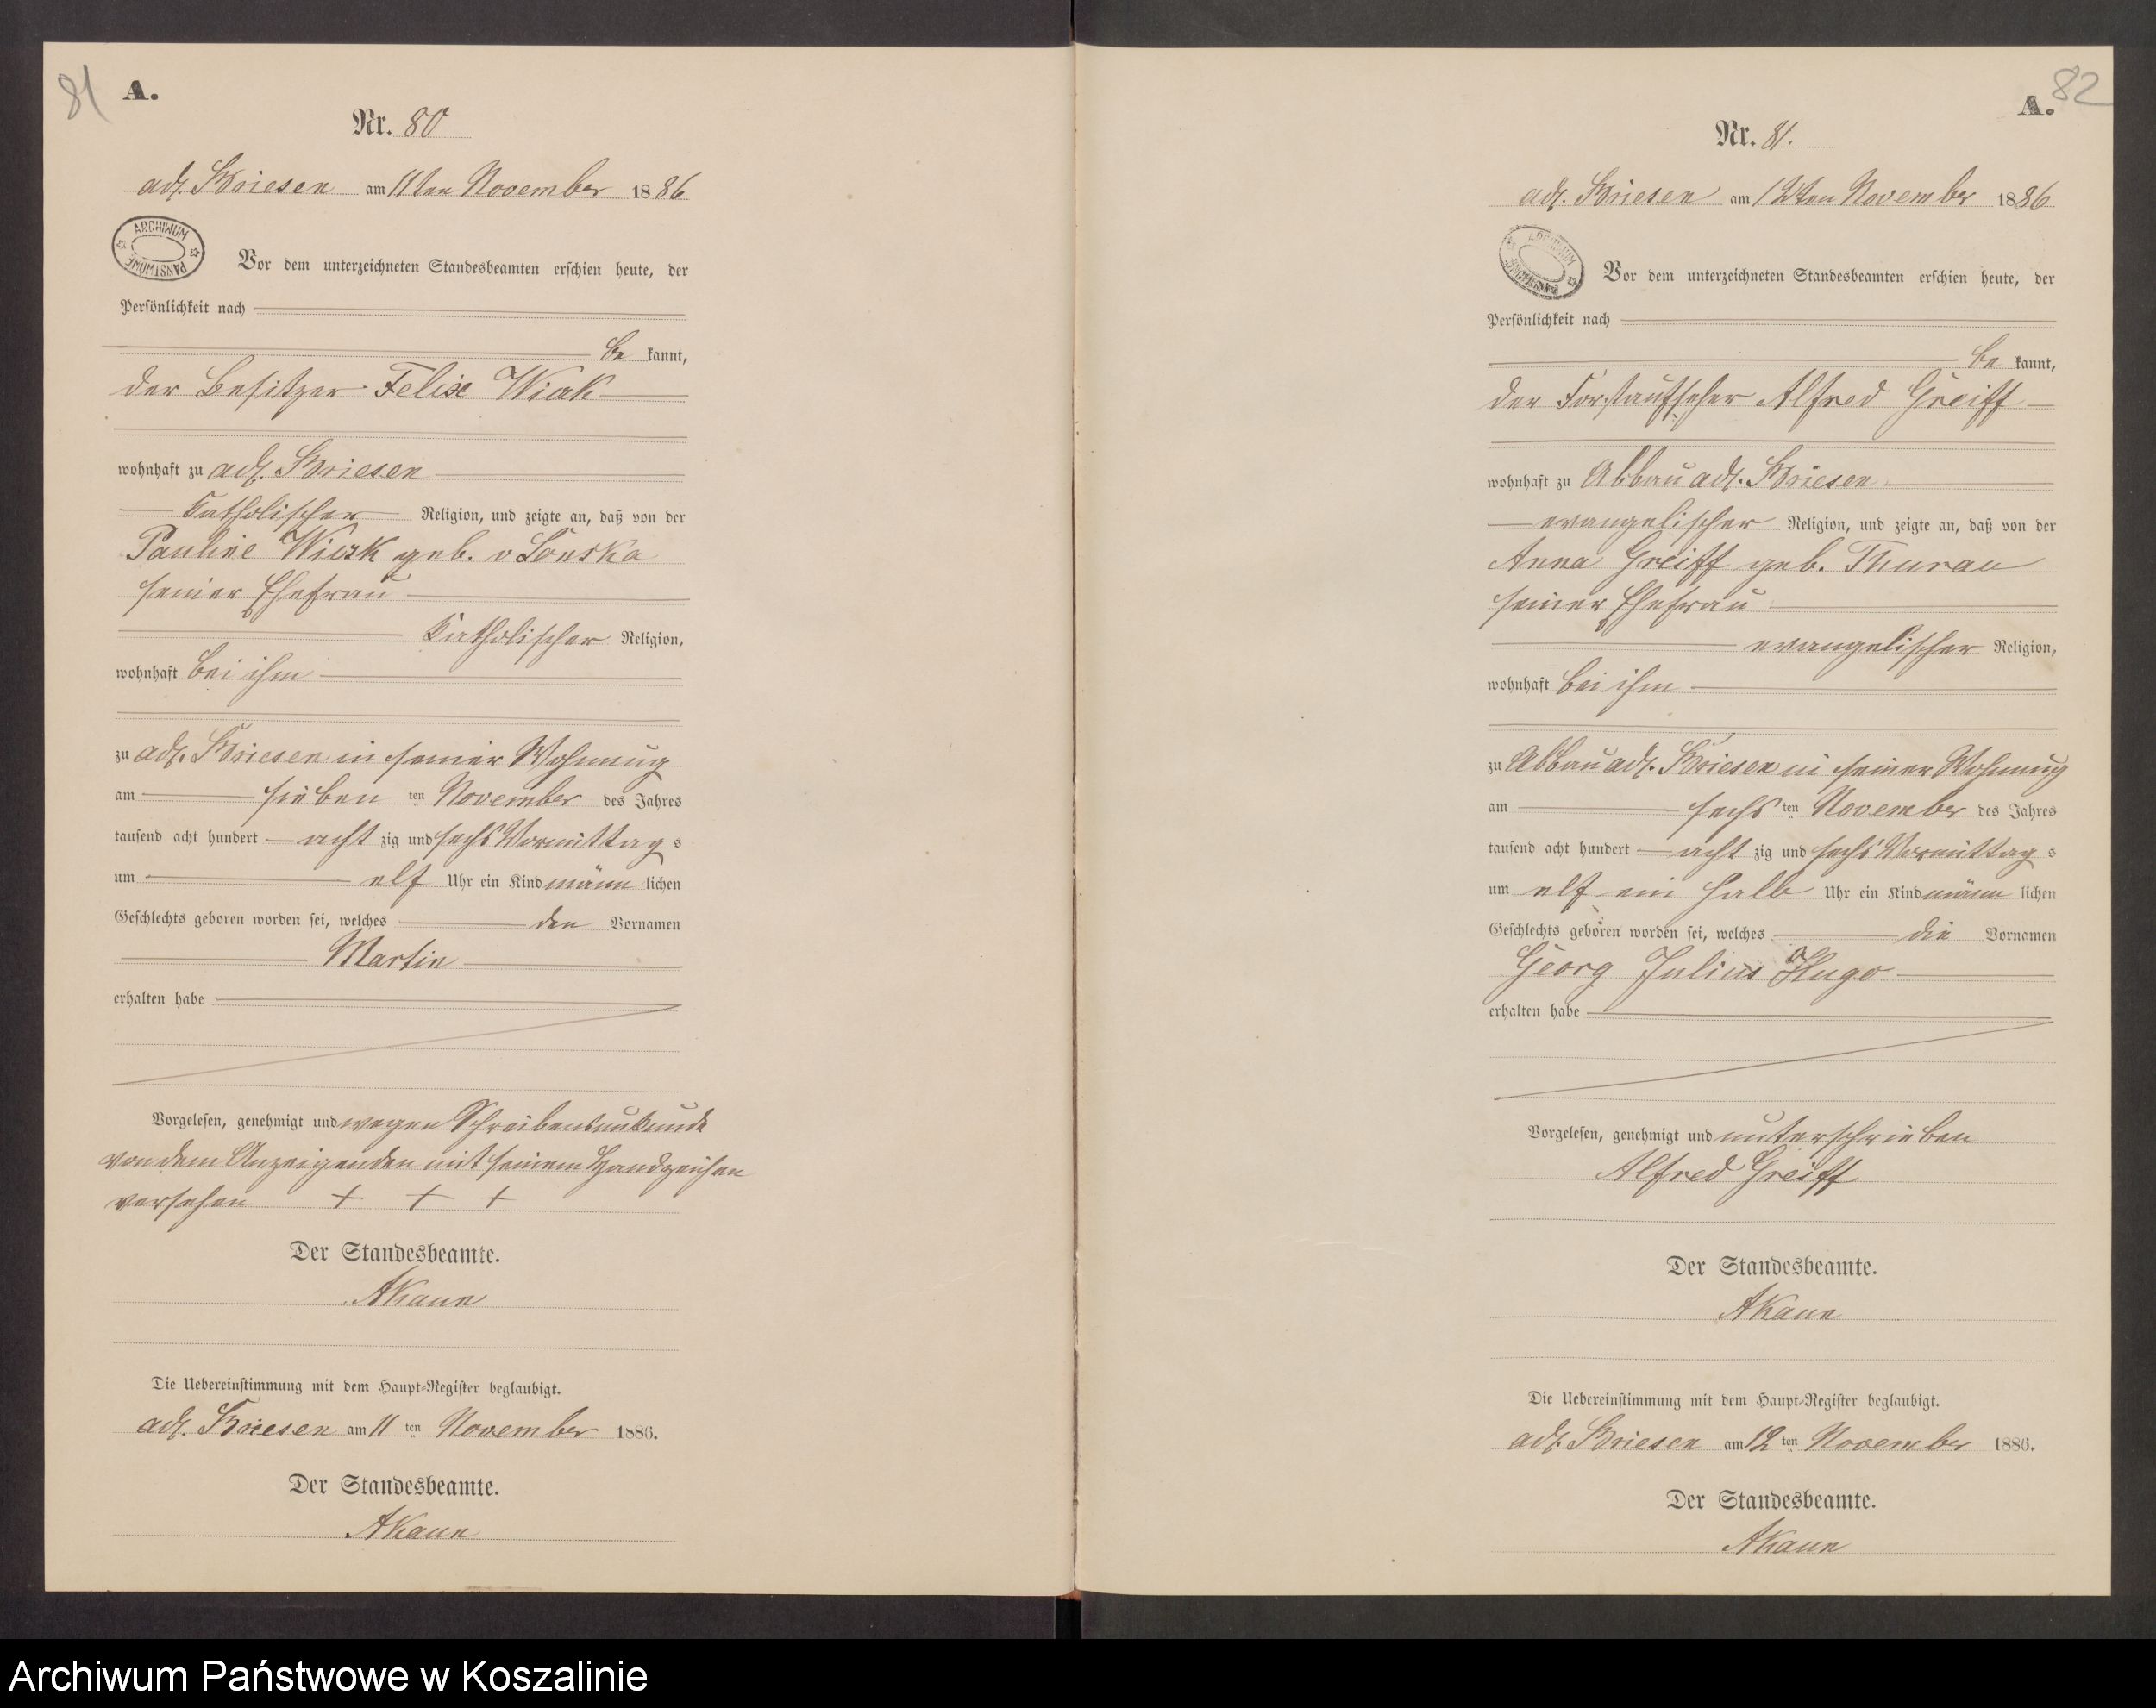 81
A.
Nr. 80
adl. Briesen am 11ten November 1886
ARCHIWUM PAŃSTWOWE
Vor dem unterzeichneten Standesbeamten erschien heute, der
Persönlichkeit nach
be kannt,
der Besitzer Felix
wohnhaft zu adl. Briesen
katholischer Religion, und zeigte an, daß von der
Pauline geb. v
seiner Ehefrau
katholischer Religion,
wohnhaft bei ihm
zu adl. Briesen in seiner Wohnung
am sieben ten November des Jahres
tausend acht hundert acht zig und sechs Vormittag s
um elf Uhr ein Kind männ lichen
Geschlechts geboren worden sei, welches den Vornamen
Martin
erhalten habe
Vorgelesen, genehmigt und wegen Schreibensunkunde
von dem Anzeigenden mit seinem Handzeichen
versehen + + +
Der Standesbeamte.
AKaun
Die Uebereinstimmung mit dem Haupt-Register beglaubigt.
adl. Briesen am 11 ten November 1886.
Der Standesbeamte.
AKaun
82
A.
Nr. 81.
adl. Briesen am 12ten November 1886
ARCHIWUM PAŃSTWOWE
Vor dem unterzeichneten Standesbeamten erschien heute, der
Persönlichkeit nach
be kannt,
der Forstaufseher Alfred Greiff
wohnhaft zu Abbau adl. Briesen
evangelischer Religion, und zeigte an, daß von der
Anna Greiff geb. Thurau
seiner Ehefrau
evangelischer Religion,
wohnhaft bei ihm
zu Abbau adl. Briesen in seiner Wohnung
am sechs ten November des Jahres
tausend acht hundert acht zig und sechs Vormittag s
um elf ein halb Uhr ein Kind männ lichen
Geschlechts geboren worden sei, welches die Vornamen
Georg Julius Hugo
erhalten habe
Vorgelesen, genehmigt und unterschrieben
Alfred Greiff
Der Standesbeamte.
AKaun
Die Uebereinstimmung mit dem Haupt-Register beglaubigt.
adl. Briesen am 12 ten November 1886.
Der Standesbeamte.
AKaun
Archiwum Państwowe w Koszalinie